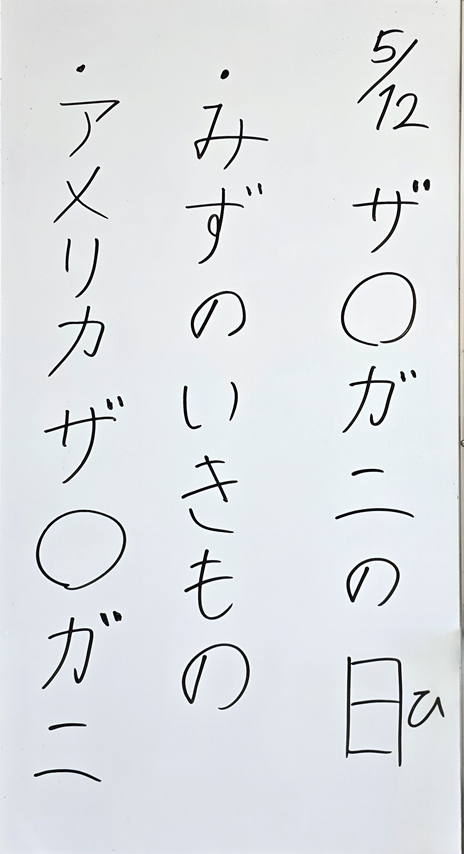 5/12 ザ〇ガニの日
ひ
・みずのいきもの
・アメリカザ〇ガニ